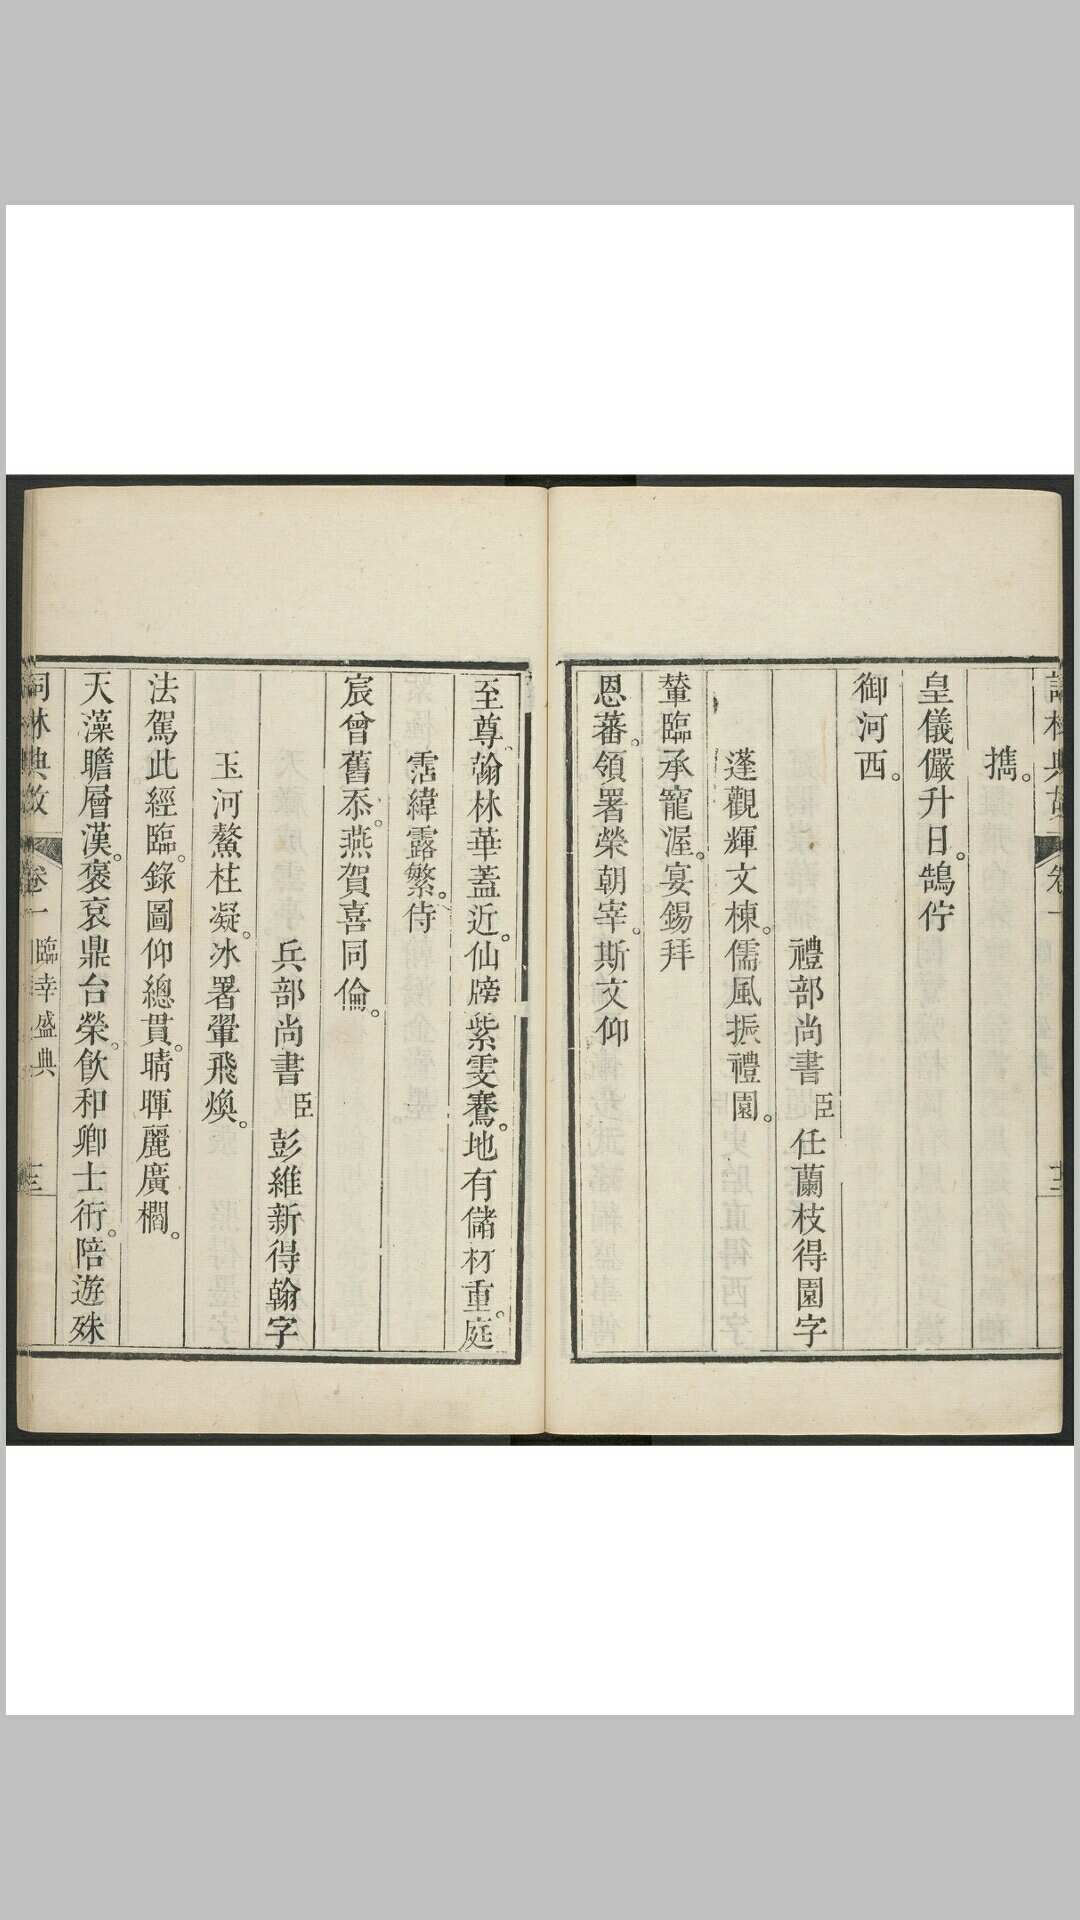 詞林典故 卷一
擕。
皇儀儼升日。鵠佇
御河西。
禮部尚書臣任蘭枝得園字
蓬觀輝文棟。儒風振禮園。
輦臨承寵渥。宴錫拜
恩蕃。領署榮朝宰。斯文仰
至尊。翰林華蓋近。仙牓紫雯騫。地有儲材重。庭
霑緯露繁。侍
宸曾舊忝。燕賀喜同倫。
兵部尚書臣彭維新得翰字
玉河鰲柱凝。冰署翬飛煥。
法駕此經臨。錄圖仰總貫。晴暉麗廣櫩。
天藻瞻層漢。褒袞鼎台榮。飲和卿士衎。陪遊殊
詞林典故 卷一 臨幸盛典